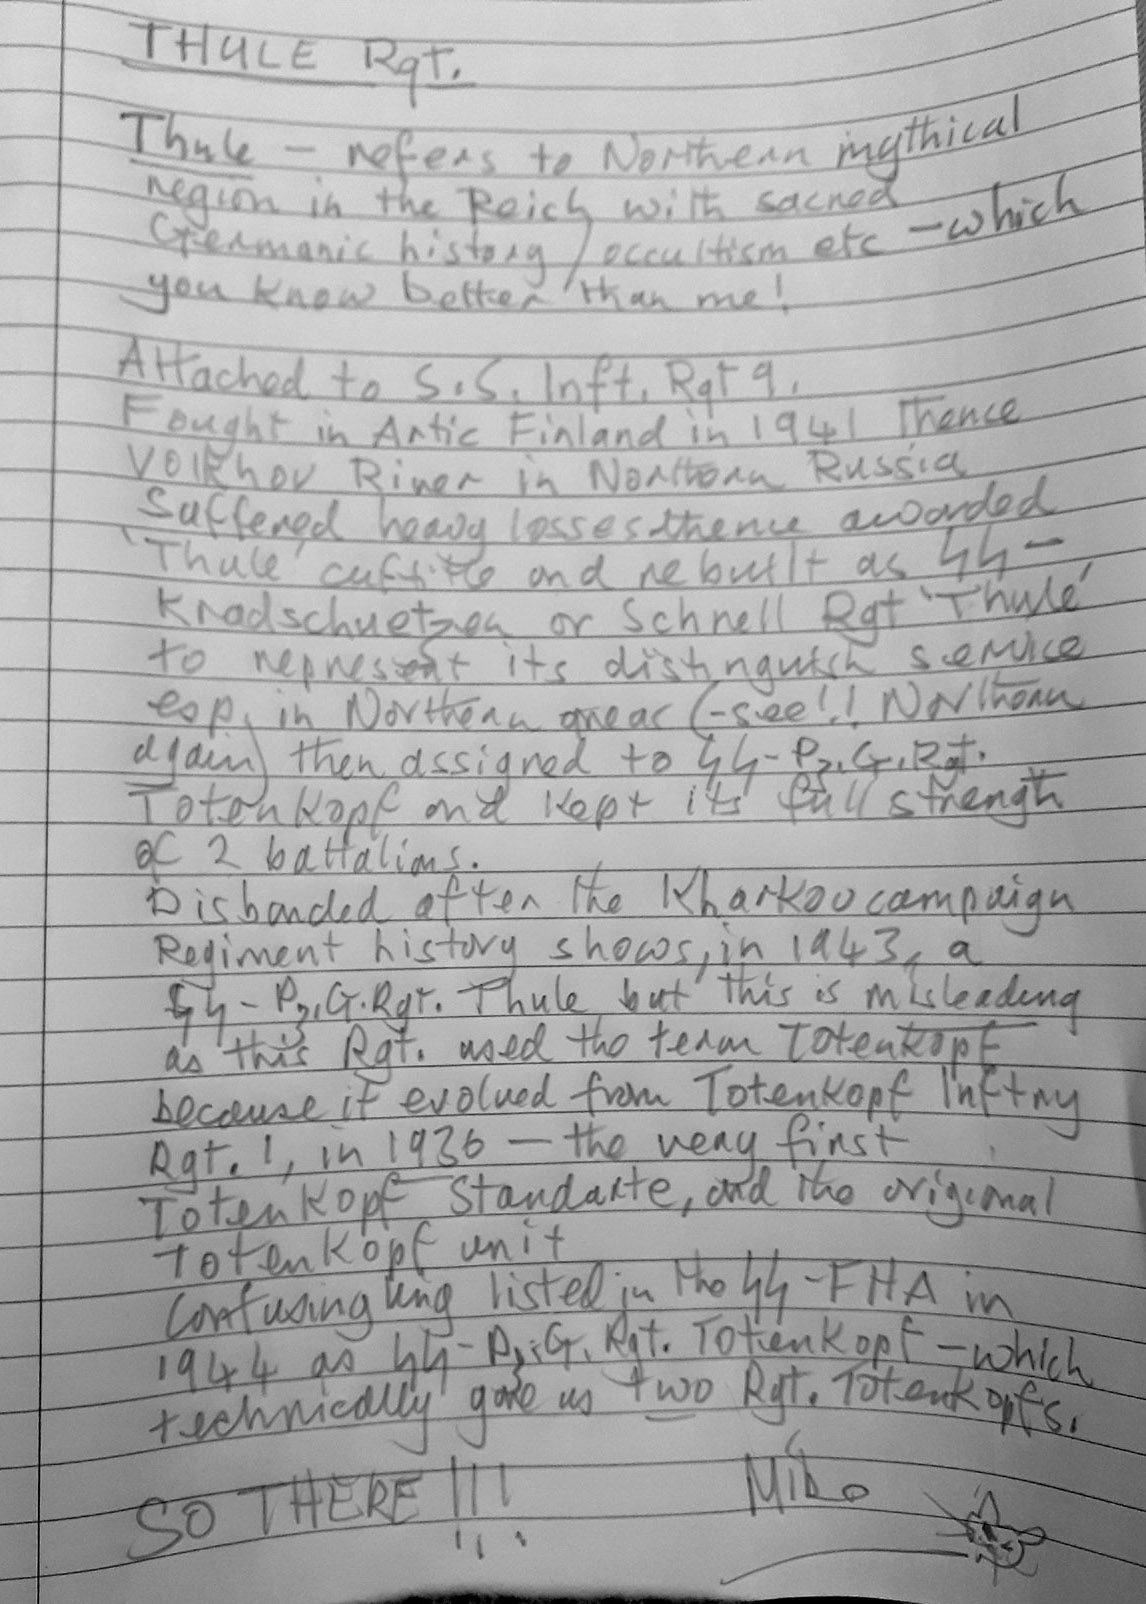 THULE Rgt.
Thule - refers to Northern mythical
region in the Reich with sacred
Germanic history / occultism etc - which
you know better than me!
Attached to S.S. Inft. Rgt 9.
Fought in Artic Finland in 1941 thence
Volkhov River in Northern Russia
Suffered heavy losses thence awarded
'Thule' cuftitle and rebuilt as SS-
Kradschuetzen or Schnell Rgt 'Thule'
to represent its distinguish service
esp. in Northern areas (-see!! Northern
again) then assigned to SS-Pz.G.Rgt.
Totenkopf and kept its full strength
of 2 battalions.
Disbanded after the Kharkov campaign
Regiment history shows, in 1943, a
SS-Pz.G.Rgt. Thule but this is misleading
as this Rgt. used the term Totenkopf
because it evolved from Totenkopf Inftry
Rgt. 1, in 1936 - the very first
Totenkopf Standarte, and the original
Totenkopf unit
Confusing listed in the SS-FHA in
1944 as SS-Pz.G.Rgt. Totenkopf - which
technically gave us two Rgt. Totenkopfs.
SO THERE!!! Miko